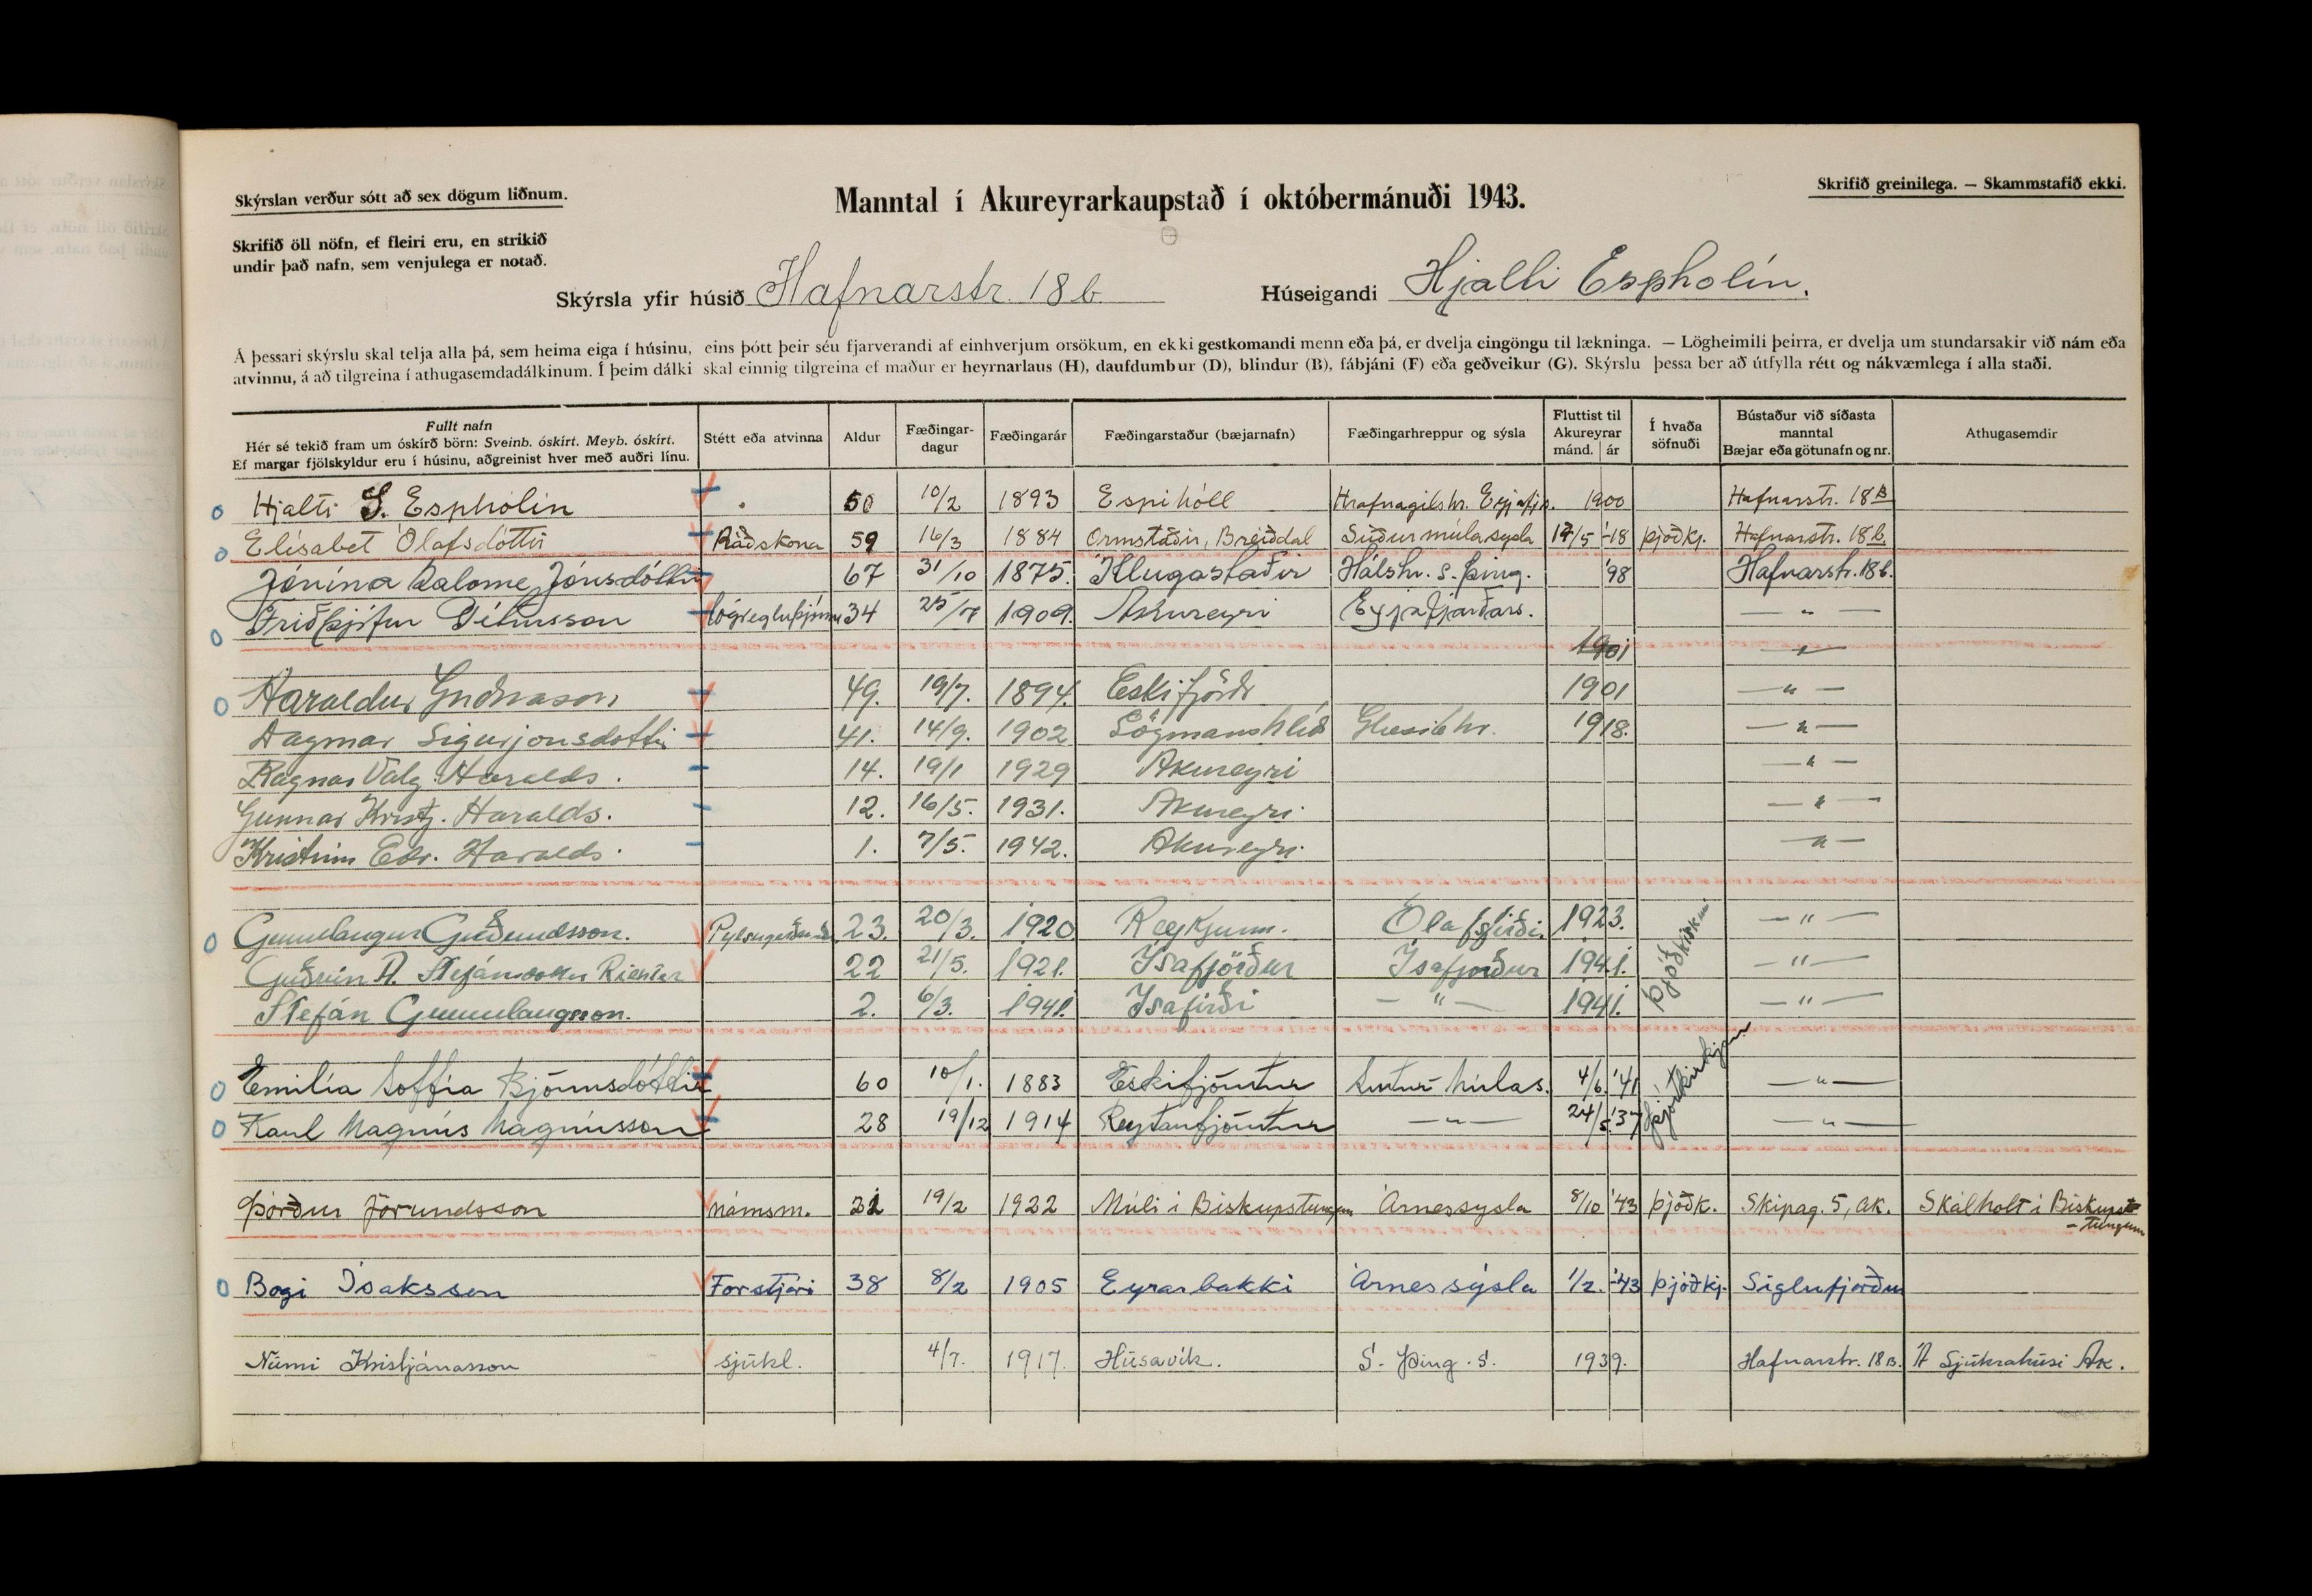 Skýrslan verður sótt að sex dögum liðnum.
Manntal í Akureyrarkaupstað í októbermánuði 1943.
Skrifið greinilega. — Skammstafið ekki.
Skrifið öll nöfn, ef fleiri eru, en strikið
undir það nafn, sem venjulega er notað.
Skýrsla yfir húsið Hafnarstr. 18 b. Húseigandi Hjalti Espholin.
Á þessari skýrslu skal telja alla þá, sem heima eiga í húsinu, eins þótt þeir séu fjarverandi af einhverjum orsökum, en ekki gestkomandi menn eða þá, er dvelja eingöngu til lækninga. — Lögheimili þeirra, er dvelja um stundarsakir við nám eða
atvinnu, á að tilgreina í athugasemdadálkinum. Í þeim dálki skal einnig tilgreina ef maður er heyrnarlaus (H), daufdumbur (D), blindur (B), fábjáni (F) eða geðveikur (G). Skýrslu þessa ber að útfylla rétt og nákvæmlega í alla staði.
Fullt nafn
Hér sé tekið fram um óskírð börn: Sveinb. óskírt. Meyb. óskírt.
Ef margar fjölskyldur eru í húsinu, aðgreinist hver með auðri línu.
Stétt eða atvinna
Aldur
Fæðingar-
dagur
Fæðingarár
Fæðingarstaður (bæjarnafn)
Fæðingarhreppur og sýsla
Fluttist til
Akureyrar
mánd. ár
Í hvaða
söfnuði
Bústaður við síðasta
manntal
Bæjar eða götunafn og nr.
Athugasemdir
Hjalti S. Espholin 50 10/2 1893 Espihóll Hrafnagilshr. Eyjafjs. 1900 Hafnarstr. 18 B
Elísabet Ólafsdóttir Ráðskona 59 16/3 1884 Ormstaðir, Breiðdal Suðurmúlasysla 14/5 '18 þjóðkj. Hafnarstr. 18 b.
Jónína Salome Jónsdóttir 67 31/10 1875. Illugastaðir Hálshr. S. Þing. '98 Hafnarstr. 18 b.
Friðþjófur Pétursson lögregluþjónn 34 1909. Akureyri Eyjafjarðars. — " —
1901 — " —
Haraldur Guðnason 49. 19/7. 1894. Eskifjörð 1901 — " —
Dagmar Sigurjonsdottir 41. 14/9. 1902 Lögmanshlíð Glæsibhr. 1918. — " —
Ragnar Valg. Haralds. 14. 19/1 1929 Akureyri — " —
Gunnar Kristj. Haralds. 12. 16/5. 1931. Akureyri — " —
Kristinn Edv. Haralds. 1. 7/5. 1942. Akureyri. — " —
Gunnlaugur Guðmundsson. 23. 20/3. 1920 Reykjum. Ólafsfirði. 1923. þjóðkirkjunni — " —
Guðrún A. Stefánsdóttir Richter 22 21/5. 1921. Ísafjörður Ísafjorður 1941. — " —
Stefán Gunnlaugsson. 2. 6/3. 1941. Ísafirði — " — 1941. — " —
Emilía Soffía Björnsdóttir 60 10/1. 1883 Eskifjörður Suður Múlas. 4/6. '41 þjóðkirkjan — " —
Karl Magnús Magnússon 28 19/12 1914 Reyðarfjörður — " — 24/5 '37 — " —
Þórður Jörundsson námsm. 21 19/2 1922 Múli í Biskupstungum Árnessysla 8/10 '43 þjóðk. Skipag. 5, Ak. Skálholt í Biskups-
-tungum
Bogi Ísaksson Forstjóri 38 8/2 1905 Eyrarbakki Árnessýsla 1/2. '43 þjóðkj. Siglufjorður
Númi Kristjánsson sjúkl. 4/7. 1917. Húsavík. S. Þing. s. 1939. Hafnarstr. 18 B. Á Sjúkrahúsi Ak.